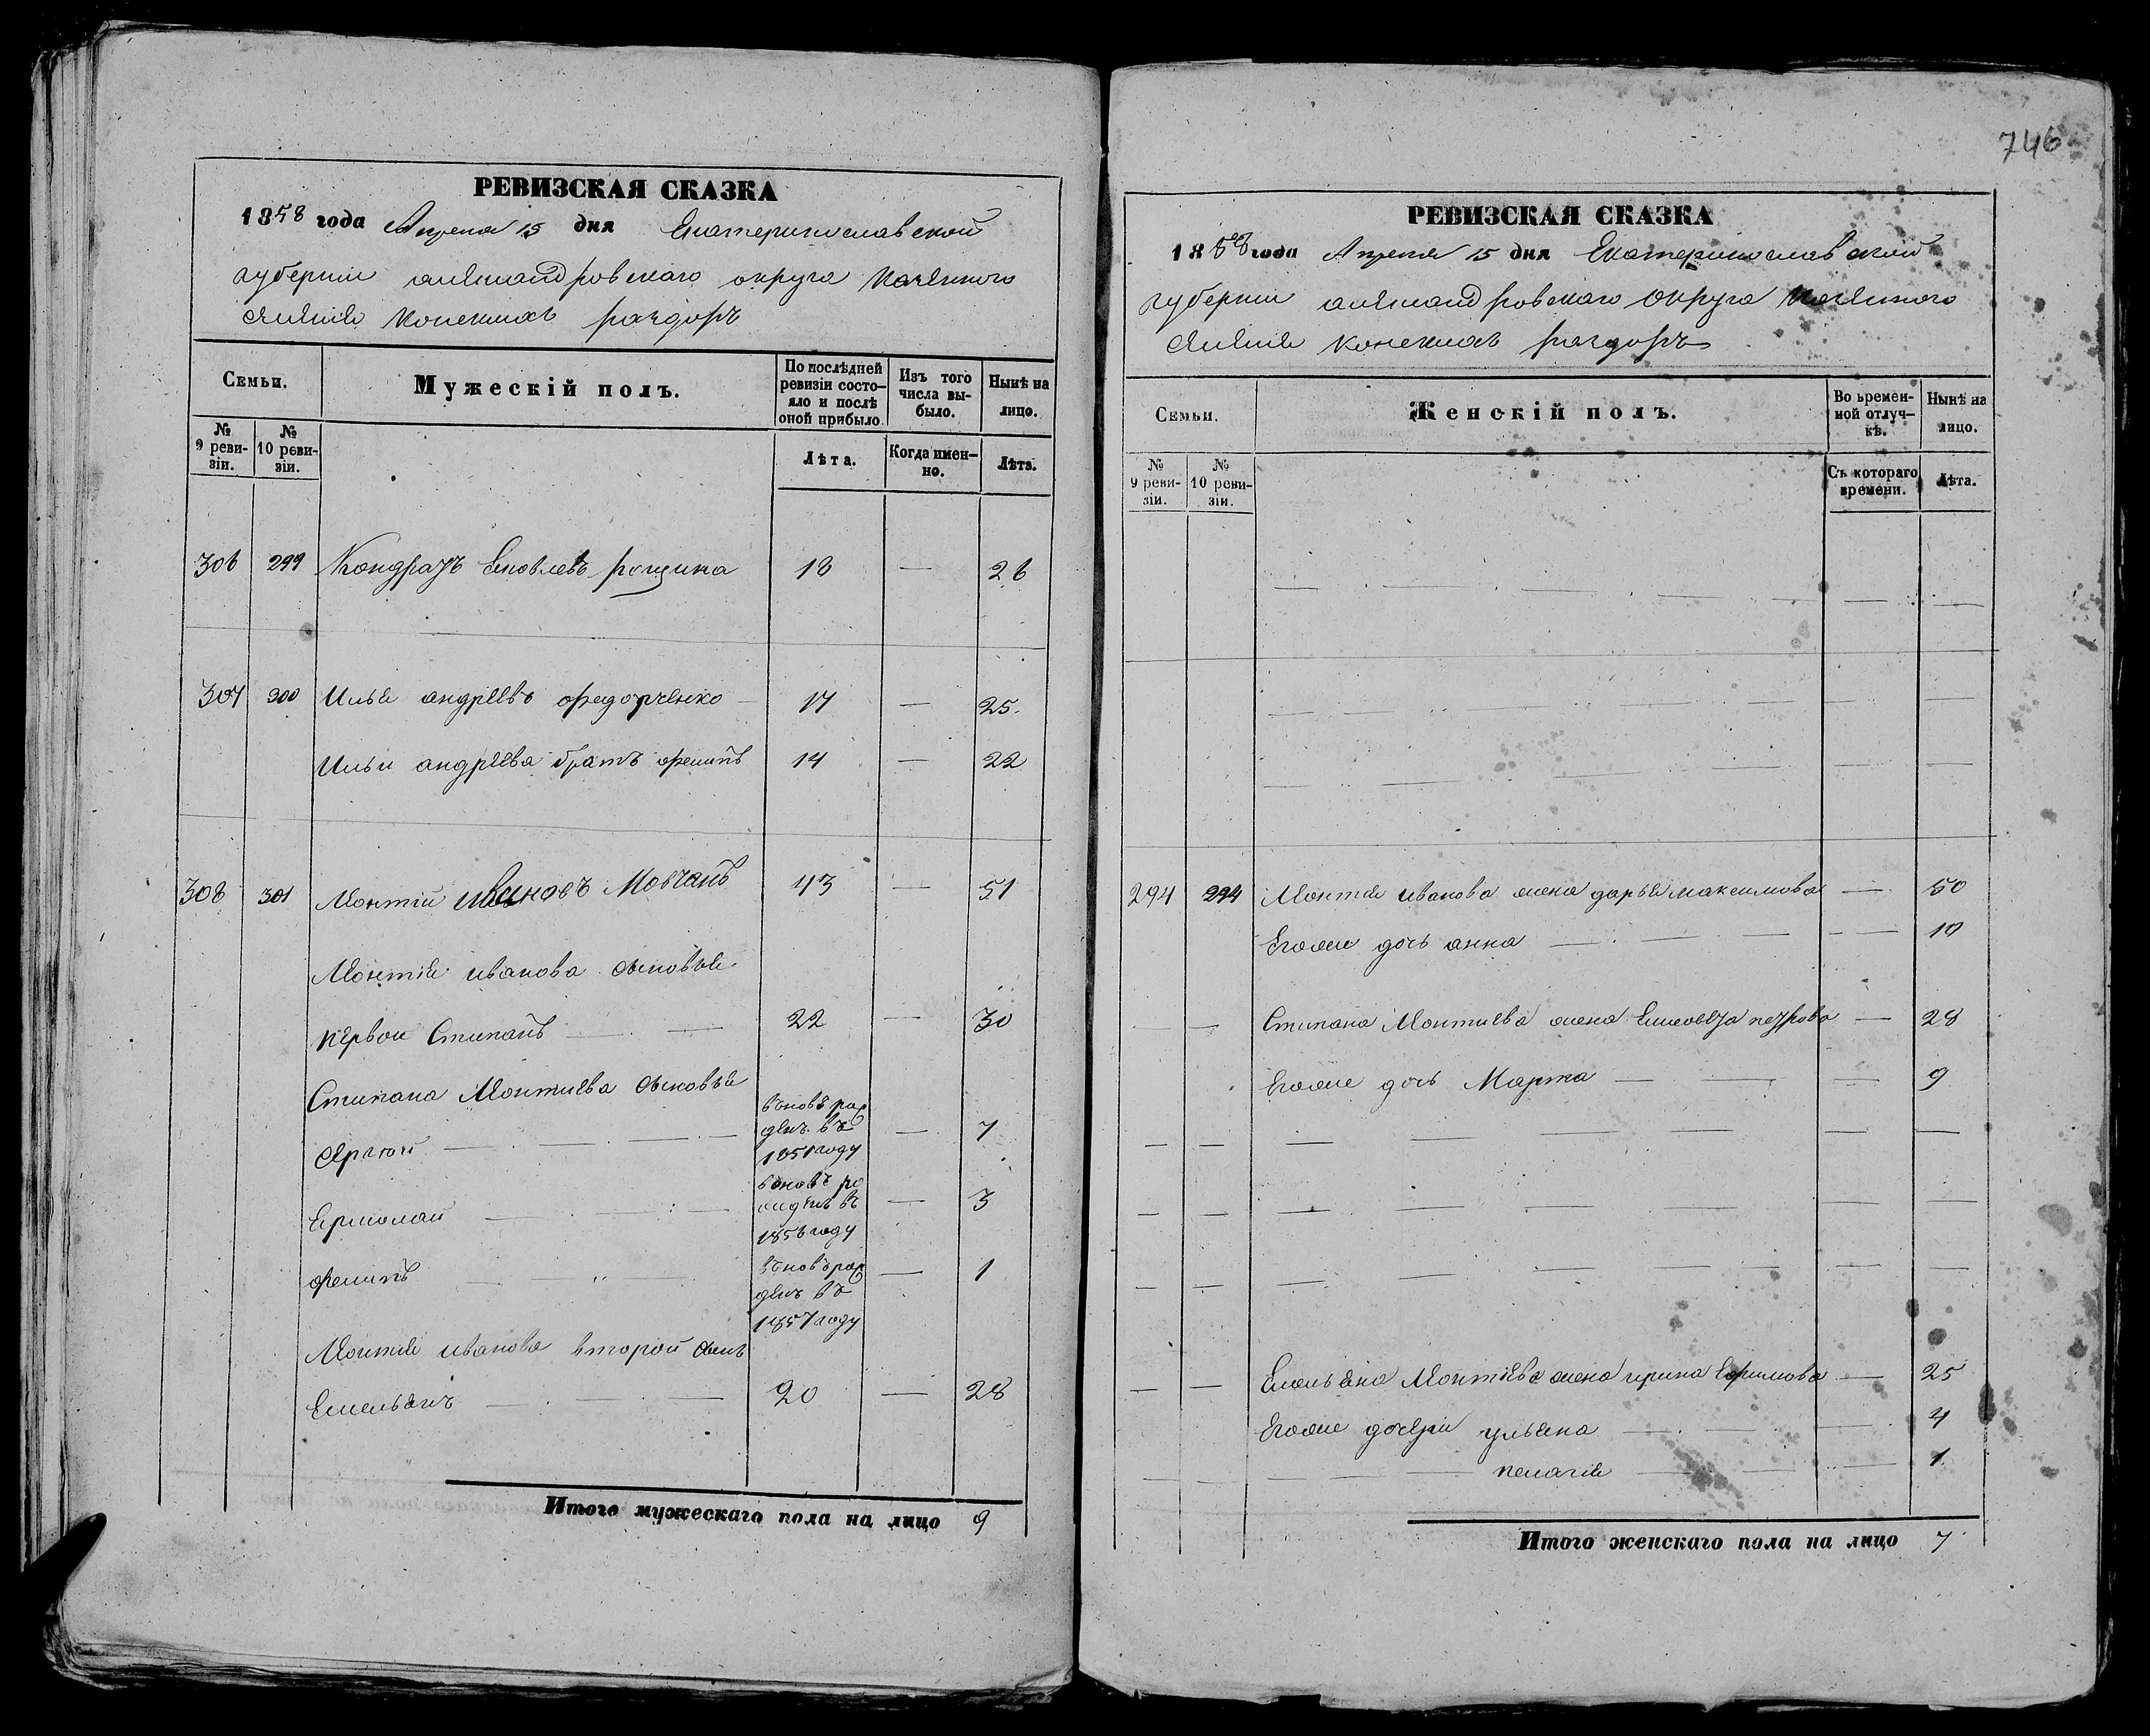 746
РЕВИЗСКАЯ СКАЗКА
1858 года Апреля 15 дня Екатеринославской
губернии александровскаго округа Казенного
селения Конскихъ раздоръ
Семьи.
Мужескій полъ.
По послѣдней ревизіи состояло и послѣ оной прибыло.
Изъ того числа выбыло.
Нынѣ на лицо.
№ 9 ревизіи.
№ 10 ревизіи.
Лѣта.
Когда именно.
Лѣта.
306 299 Кондратъ Яковлевъ рощина 18 — 26
307 300 Илья андреевъ федорченко — 17 — 25.
Ильи андреева братъ филипъ 14 — 22
308 301 Монтій ивановъ Мовчанъ 43 — 51
Монтія иванова сыновья
первой Стипанъ — — 22 — 30
Стипана Монтиева сыновья
Сергей — — — вновь рожденъ въ 1851 году — 7
Ермолай — — — вновь рожденъ въ 1856 году — 3
филипъ — „ — вновь рожденъ въ 1857 году — 1
Монтия иванова второй сынъ
Емельянъ — — 20 — 28
Итого мужескаго пола на лицо 9
РЕВИЗСКАЯ СКАЗКА
1858 года Апреля 15 дня Екатеринославской
губернии александровскаго округа Казенного
селения конскихъ раздоръ
Семьи.
Женскій полъ.
Во временной отлучкѣ.
Нынѣ на лицо.
№ 9 ревизіи.
№ 10 ревизіи.
Съ котораго времени.
Лѣта.
294 294 Монтия иванова жена дарья максимова — 50
Егоже дочь анна — — — — — 19
— — Стипана Монтиева жена Елисовета петрова — 28
Егоже дочь Марта — — — 9
— — Емельяна Монтиева жена ирина Ефимова — 25
Егоже дочери ульяна — — — 4
пелагия — — — 1.
Итого женскаго пола на лицо 7